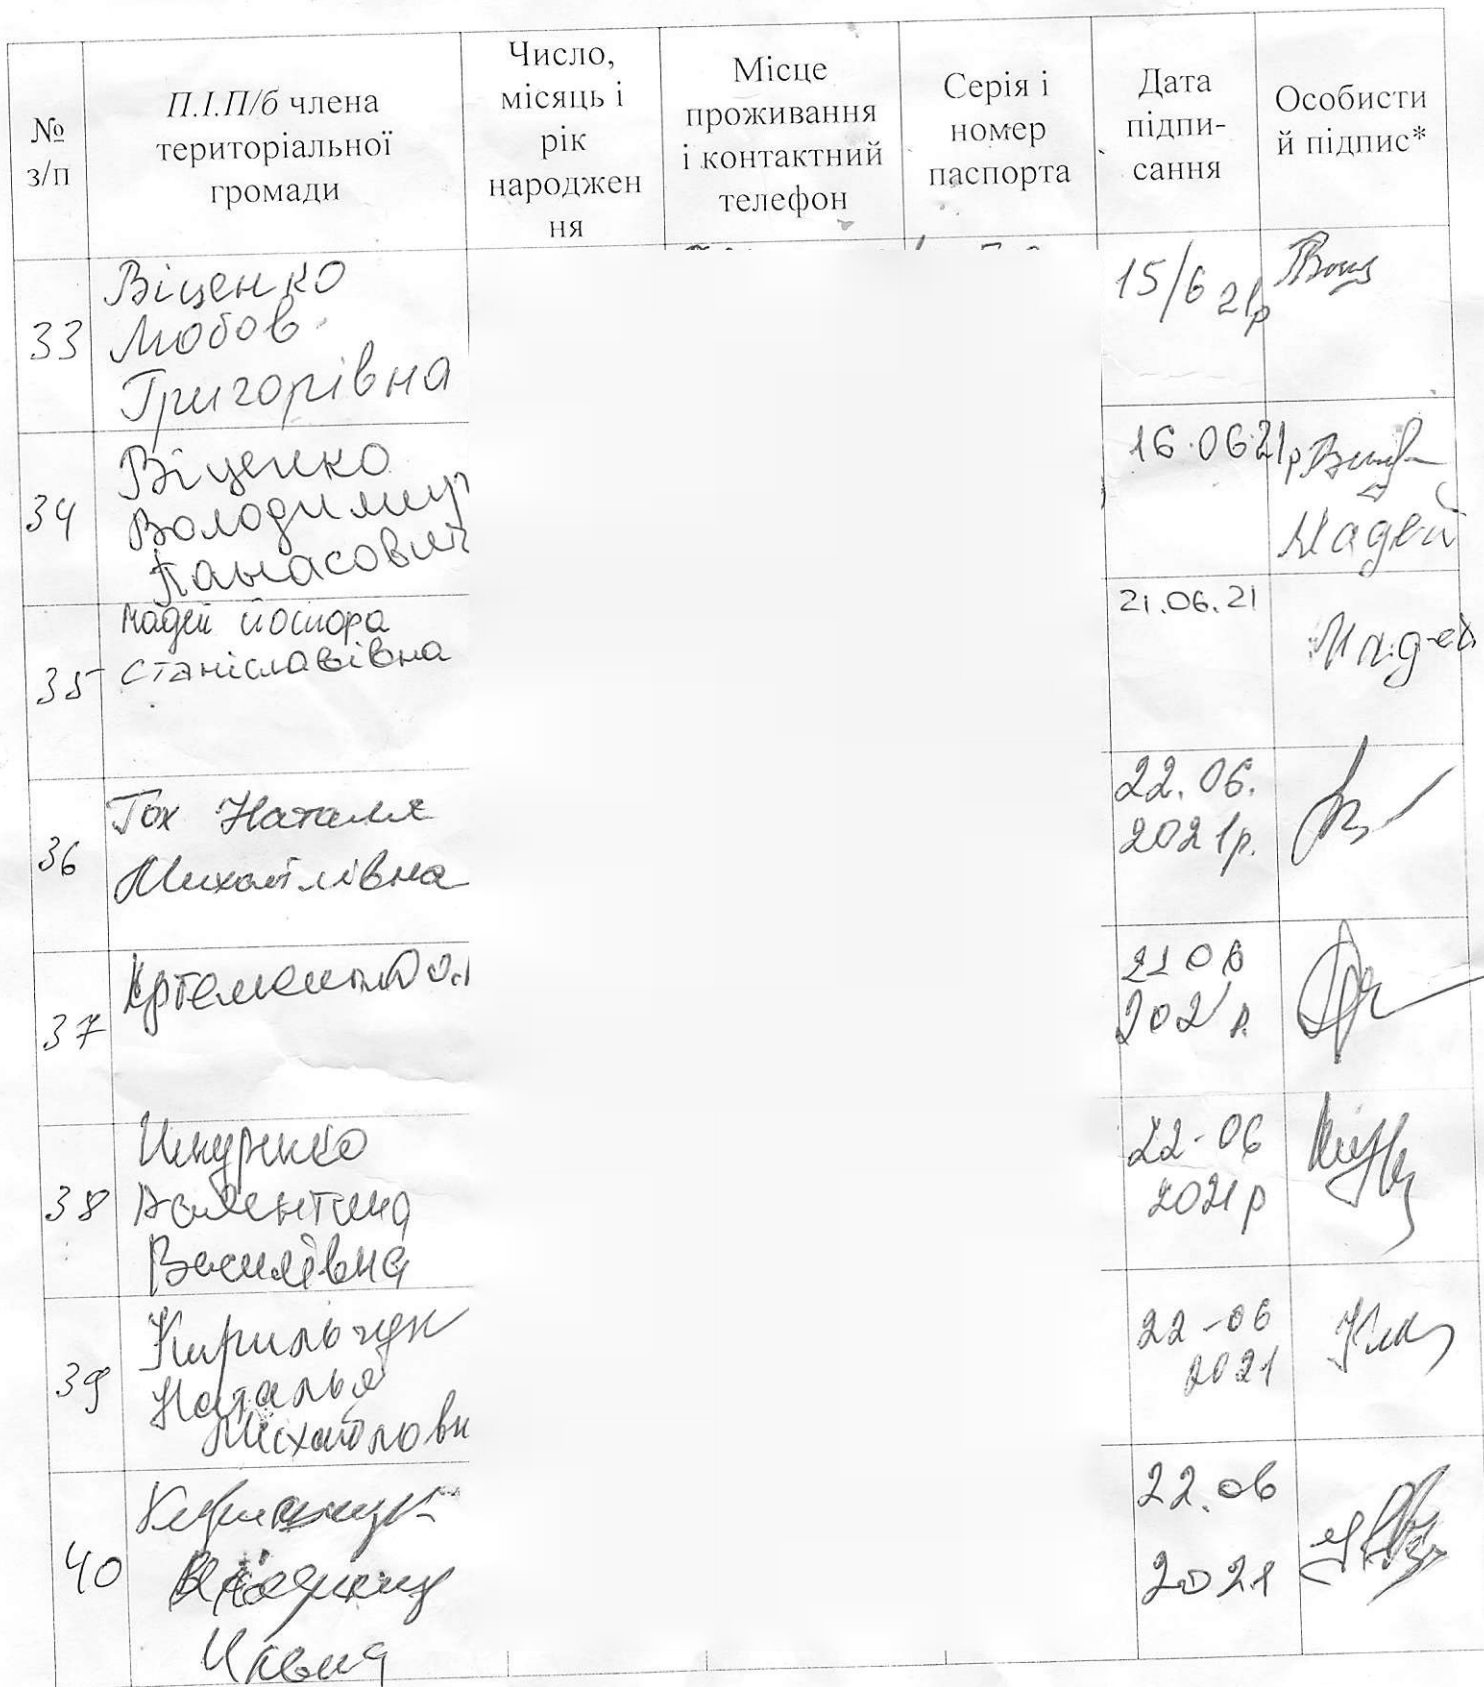 №
з/п
П.І.П/б члена
територіальної
громади
Число,
місяць і
рік
народжен
ня
Місце
проживання
і контактний
телефон
Серія і
номер
паспорта
Дата
підпи-
сання
Особисти
й підпис*
33
Віценко
Любов
Григорівна
15/6 21р
34
Віценко
Володимир
Панасович
16.06.21р
Мадей
35
Мадей
Станіславівна
21.06.21
Мадей
36
Гох Наталя
Михайлівна
22.06.
2021р.
37
21 06
2021 р.
38
Валентина
Василівна
22-06
2021р
39
Кирильчук
Наталья
Михайловн
22-06
2021
40
22.06
2021